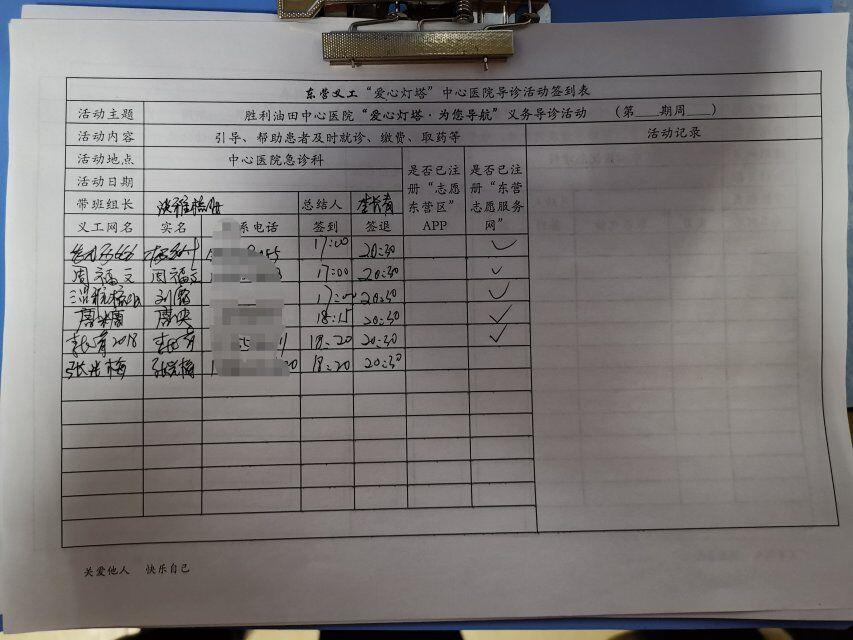 东营义工“爱心灯塔”中心医院导诊活动签到表
活动主题 胜利油田中心医院“爱心灯塔·为您导航”义务导诊活动 (第___期周___)
活动内容 引导、帮助患者及时就诊、缴费、取药等 活动记录
活动地点 中心医院急诊科 是否已注册“志愿东营区”APP 是否已注册“东营志愿服务网”
活动日期
带班组长 总结人 李长有
义工网名 实名 系电话 签到 签退
17:00 20:30 ✓
周福文 周福文 17:00 20:30 ✓
17:00 20:30 ✓
18:15 20:30 ✓
2018 18:20 20:30 ✓
张光梅 张光梅 18:20 20:30
关爱他人 快乐自己